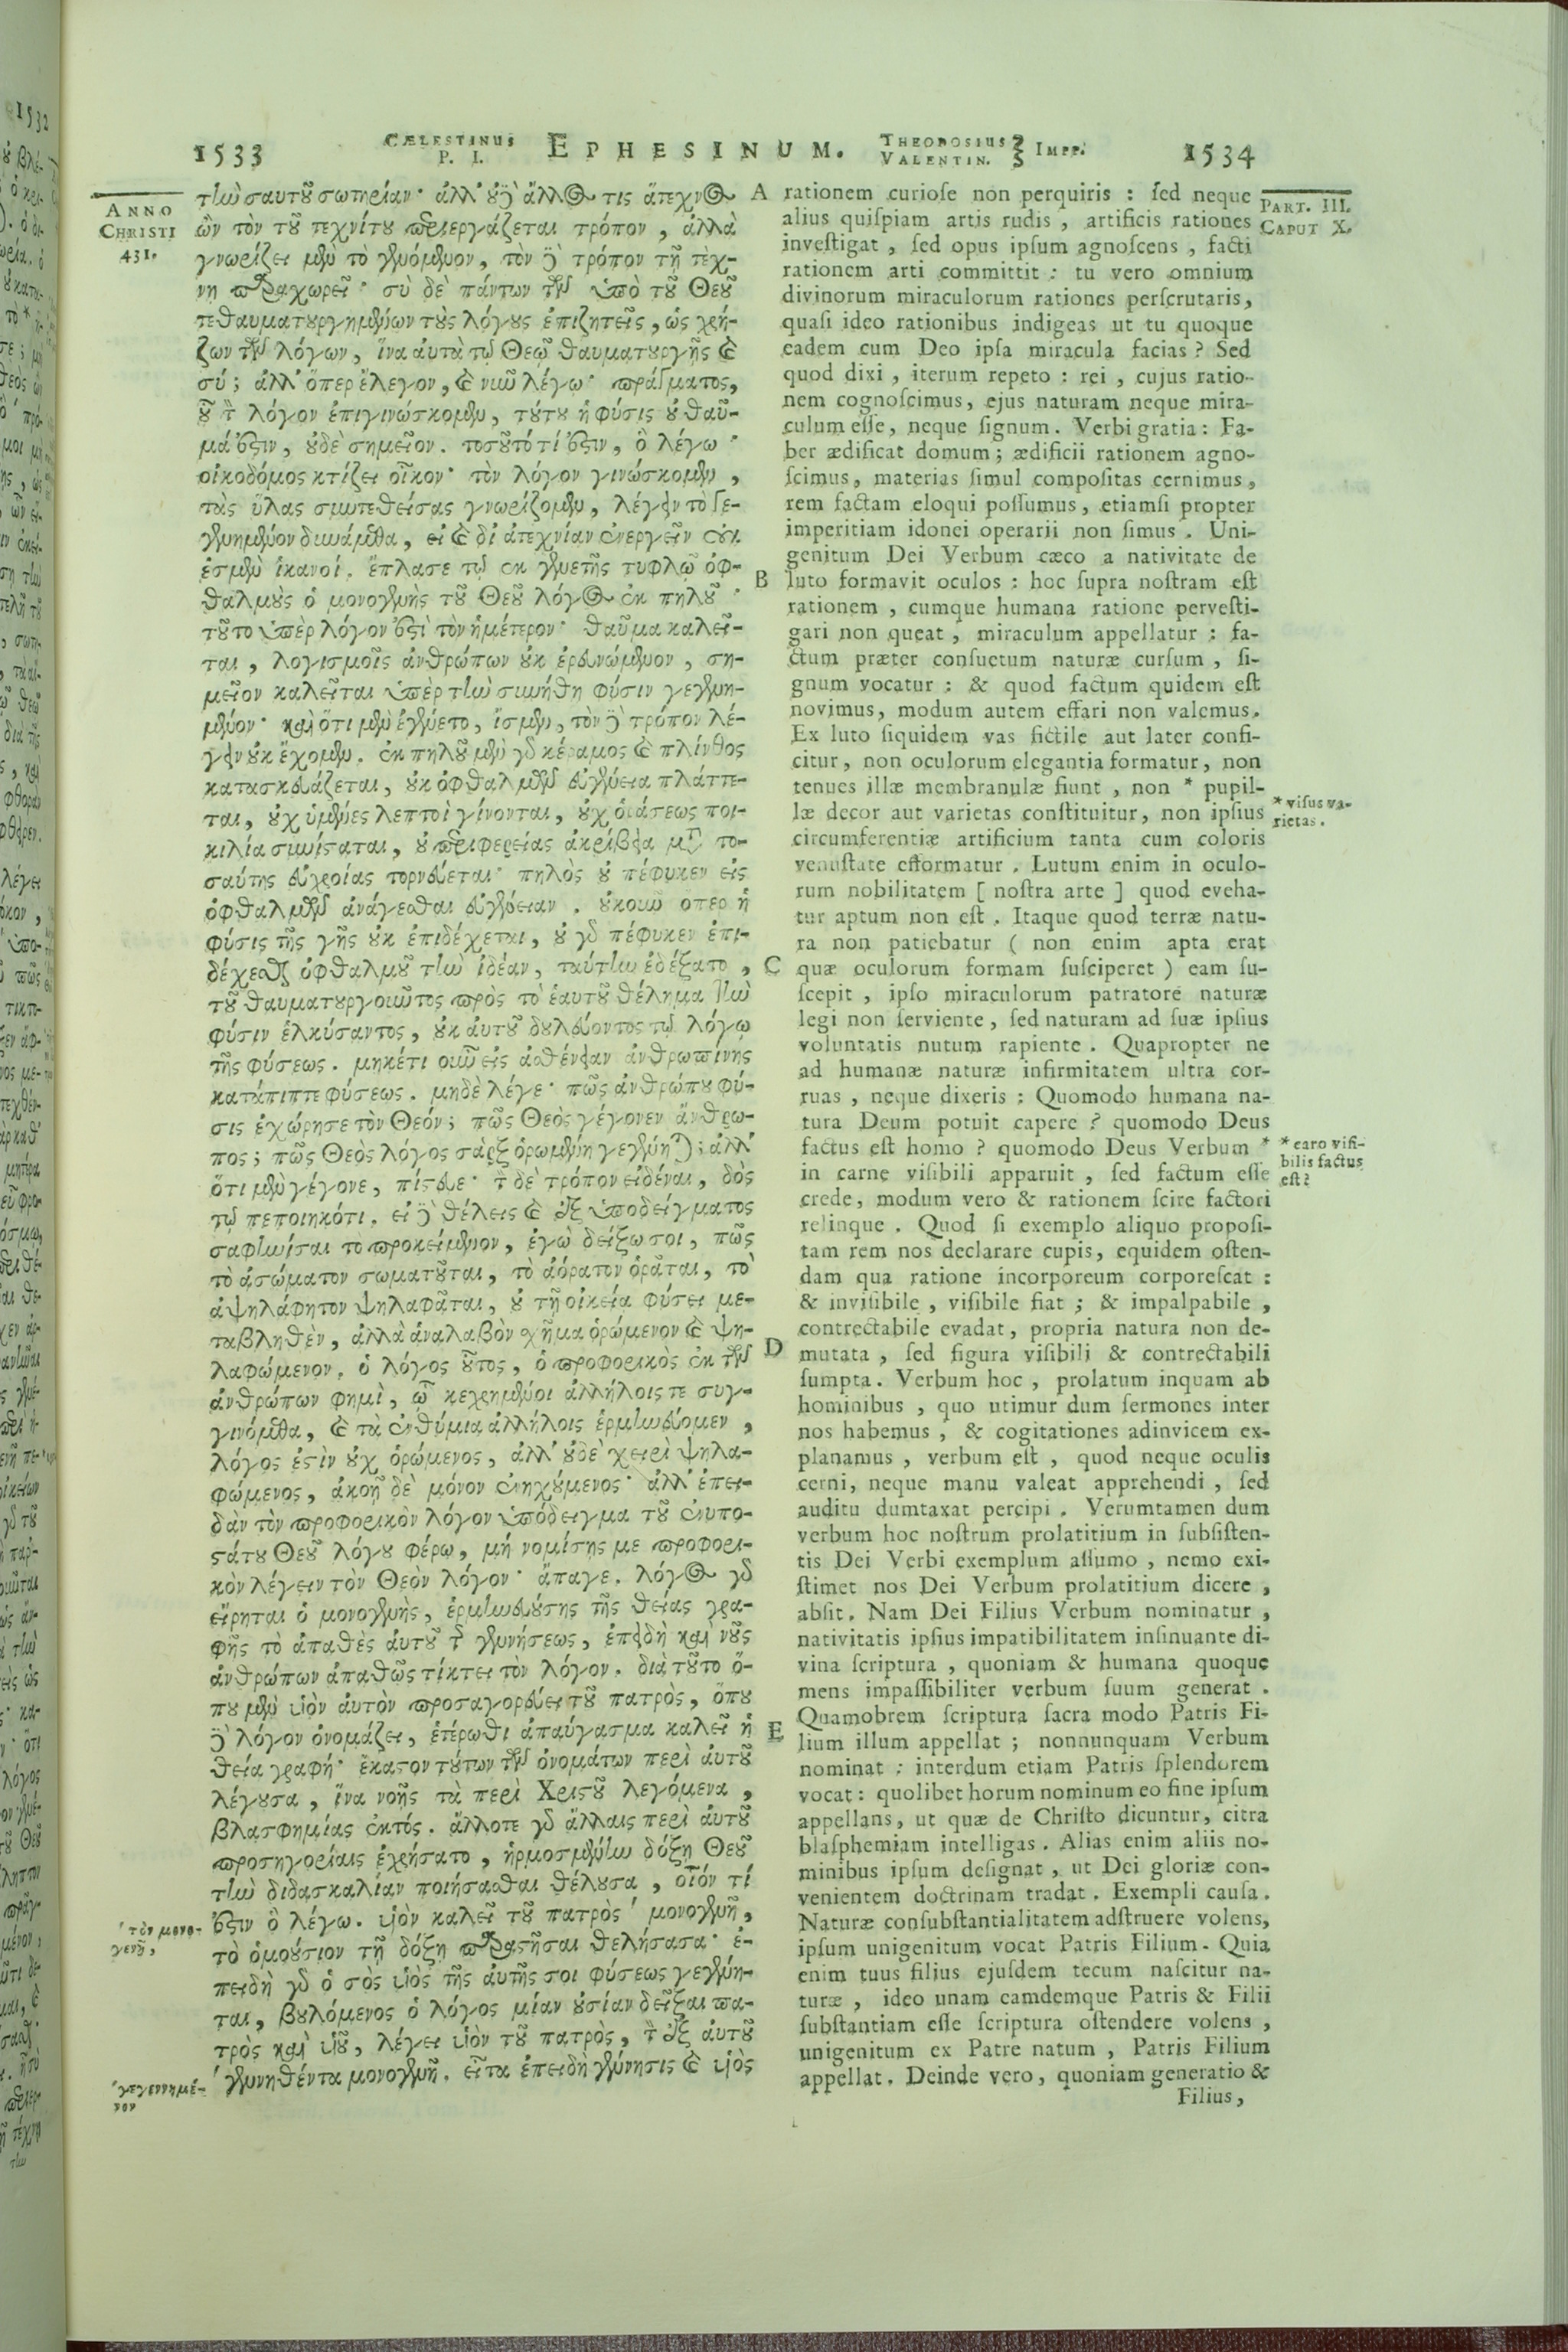 1533
CÆLESTINUS
P. I.
EPHESINUM.
THEODOSIUS
VALENTIN.
IMPP.
1534
ANNO
CHRISTI
431.
τὴν σαυτοῦ σωτηρίαν· ἀλλ' οὐδὲ ἄλλος τις ἄτεχνος
ὢν τὸν τοῦ τεχνίτου περιεργάζεται τρόπον, ἀλλὰ
γνωρίζει μὲν τὸ γενόμενον, τὸν δὲ τρόπον τῇ τέχ-
νῃ παραχωρεῖ· σὺ δὲ πάντων τῶν ὑπὸ τοῦ Θεοῦ
τεθαυματουργημένων τοὺς λόγους ἐπιζητεῖς, ὡς χρή-
ζων τῶν λόγων, ἵνα αὐτὰ τῷ Θεῷ θαυματουργῇς καὶ
σύ; ἀλλ' ὅπερ ἔλεγον, καὶ νῦν λέγω· πράγματος,
οὗ τὸν λόγον ἐπιγινώσκομεν, τούτου ἡ φύσις οὐ θαῦ-
μά ἐστιν, οὐδὲ σημεῖον. τοσοῦτό τί ἐστιν, ὃ λέγω·
οἰκοδόμος κτίζει οἶκον· τὸν λόγον γινώσκομεν,
τὰς ὕλας συντεθείσας γνωρίζομεν, λέγειν τὸ γε-
γενημένον δυνάμεθα, εἰ καὶ δι' ἀτεχνίαν ἐνεργεῖν οὐκ
ἐσμὲν ἱκανοί. ἔπλασε τῷ ἐκ γενετῆς τυφλῷ ὀφ-
θαλμοὺς ὁ μονογενὴς τοῦ Θεοῦ λόγος ἐκ πηλοῦ·
τοῦτο ὑπὲρ λόγον ἐστὶ τὸν ἡμέτερον· θαῦμα καλεῖ-
ται, λογισμοῖς ἀνθρώπων οὐκ ἐρευνώμενον, ση-
μεῖον καλεῖται ὑπὲρ τὴν συνήθη φύσιν γεγενη-
μένον· καὶ ὅτι μὲν ἐγένετο, ἴσμεν, τὸν δὲ τρόπον λέ-
γειν οὐκ ἔχομεν. ἐκ πηλοῦ μὲν γὰρ κέραμος καὶ πλίνθος
κατασκευάζεται, οὐκ ὀφθαλμῶν εὐγένεια πλάττε-
ται, οὐχ ὑμένες λεπτοὶ γίνονται, οὐχ ὁράσεως ποι-
κιλία συνίσταται, οὐ περιφερείας ἀκρίβεια μετὰ το-
σαύτης εὐχροίας τορνεύεται· πηλὸς οὐ πέφυκεν εἰς
ὀφθαλμῶν ἀνάγεσθαι εὐγένειαν. οὐκοῦν ὅπερ ἡ
φύσις τῆς γῆς οὐκ ἐπιδέχεται, οὐ γὰρ πέφυκεν ἐπι-
δέχεσθαι ὀφθαλμοῦ τὴν ἰδέαν, ταύτην ἐδέξατο,
τοῦ θαυματουργοῦντος πρὸς τὸ ἑαυτοῦ θέλημα τὴν
φύσιν ἑλκύσαντος, οὐκ αὐτοῦ δουλεύοντος τῷ λόγῳ
τῆς φύσεως. μηκέτι οὖν εἰς ἀσθένειαν ἀνθρωπίνης
κατάπιπτε φύσεως. μηδὲ λέγε· πῶς ἀνθρώπου φύ-
σις ἐχώρησε τὸν Θεόν; πῶς Θεὸς γέγονεν ἄνθρω-
πος; πῶς Θεὸς λόγος σὰρξ ὁρωμένη γεγένηται; ἀλλ'
ὅτι μὲν γέγονε, πίστευε· τὸν δὲ τρόπον εἰδέναι, δὸς
τῷ πεποιηκότι. εἰ δὲ θέλεις καὶ ἐξ ὑποδείγματος
σαφηνίσαι τὸ προκείμενον, ἐγὼ δείξω σοι, πῶς
τὸ ἀσώματον σωματοῦται, τὸ ἀόρατον ὁρᾶται, τὸ
ἀψηλάφητον ψηλαφᾶται, οὐ τῇ οἰκείᾳ φύσει με-
ταβληθὲν, ἀλλὰ ἀναλαβὸν σχῆμα ὁρώμενον καὶ ψη-
λαφώμενον. ὁ λόγος οὗτος, ὁ προφορικὸς ἐκ τῶν
ἀνθρώπων φημὶ, ᾧ κεχρημένοι ἀλλήλοις τε συγ-
γινόμεθα, καὶ τὰ ἐνθύμια ἀλλήλοις ἑρμηνεύομεν,
λόγος ἐστὶν οὐχ ὁρώμενος, ἀλλ' οὐδὲ χειρὶ ψηλα-
φώμενος, ἀκοῇ δὲ μόνον ἐνηχούμενος· ἀλλ' ἐπει-
δὰν τὸν προφορικὸν λόγον ὑπόδειγμα τοῦ ἐνυπο-
στάτου Θεοῦ λόγου φέρω, μή νομίσῃς με προφορι-
κὸν λέγειν τὸν Θεὸν λόγον· ἄπαγε. λόγος γὰρ
εἴρηται ὁ μονογενὴς, ἑρμηνευούσης τῆς θείας γρα-
φῆς τὸ ἀπαθὲς αὐτοῦ τῆς γεννήσεως, ἐπειδὴ καὶ νοῦς
ἀνθρώπων ἀπαθῶς τίκτει τὸν λόγον. διὰ τοῦτο ὅ-
που μὲν υἱὸν αὐτὸν προσαγορεύει τοῦ πατρὸς, ὅπου
δὲ λόγον ὀνομάζει, ἑτέρωθι ἀπαύγασμα καλεῖ ἡ
θεία γραφή· ἕκαστον τούτων τῶν ὀνομάτων περὶ αὐτοῦ
λέγουσα, ἵνα νοῇς τὰ περὶ Χριστοῦ λεγόμενα,
βλασφημίας ἐκτός. ἄλλοτε γὰρ ἄλλαις περὶ αὐτοῦ
προσηγορίαις ἐχρήσατο, ἡρμοσμένην δόξῃ Θεοῦ
τὴν διδασκαλίαν ποιήσασθαι θέλουσα, οἷόν τί
ἐστιν ὃ λέγω. υἱὸν καλεῖ τοῦ πατρὸς ' μονογενῆ,
τὸ ὁμοούσιον τῇ δόξῃ παραστῆσαι θελήσασα· ἐ-
πειδὴ γὰρ ὁ σὸς υἱὸς τῆς αὐτῆς σοι φύσεως γεγένη-
ται, βουλόμενος ὁ λόγος μίαν οὐσίαν δεῖξαι πα-
τρὸς καὶ υἱοῦ, λέγει υἱὸν τοῦ πατρὸς, τὸν ἐξ αὐτοῦ
' γεννηθέντα μονογενῆ. εἶτα ἐπειδὴ γέννησις καὶ υἱὸς
' τὸν μονο-
γενῆ,
' γεγεννημέ-
νον
A
B
C
D
E
rationem curiose non perquiris : sed neque
alius quispiam artis rudis , artificis rationes
investigat , sed opus ipsum agnoscens , facti
rationem arti committit : tu vero omnium
divinorum miraculorum rationes perscrutaris,
quasi ideo rationibus indigeas ut tu quoque
eadem cum Deo ipsa miracula facias ? Sed
quod dixi , iterum repeto : rei , cujus ratio-
nem cognoscimus, ejus naturam neque mira-
culum esse, neque signum. Verbi gratia: Fa-
ber ædificat domum; ædificii rationem agno-
scimus, materias simul compositas cernimus,
rem factam eloqui possumus, etiamsi propter
imperitiam idonei operarii non simus . Uni-
genitum Dei Verbum cæco a nativitate de
luto formavit oculos : hoc supra nostram est
rationem , cumque humana ratione pervesti-
gari non queat , miraculum appellatur : fa-
ctum præter consuetum naturæ cursum , si-
gnum vocatur : & quod factum quidem est
novimus, modum autem effari non valemus.
Ex luto siquidem vas fictile aut later confi-
citur, non oculorum elegantia formatur, non
tenues illæ membranulæ fiunt , non * pupil-
læ decor aut varietas constituitur, non ipsius
circumferentiæ artificium tanta cum coloris
venustate efformatur . Lutum enim in oculo-
rum nobilitatem [ nostra arte ] quod eveha-
tur aptum non est . Itaque quod terræ natu-
ra non patiebatur ( non enim apta erat
quæ oculorum formam susciperet ) eam su-
scepit , ipso miraculorum patratore naturæ
legi non serviente, sed naturam ad suæ ipsius
voluntatis nutum rapiente . Quapropter ne
ad humanæ naturæ infirmitatem ultra cor-
ruas , neque dixeris : Quomodo humana na-
tura Deum potuit capere ? quomodo Deus
factus est homo ? quomodo Deus Verbum *
in carne visibili apparuit , sed factum esse
crede, modum vero & rationem scire factori
relinque . Quod si exemplo aliquo proposi-
tam rem nos declarare cupis, equidem osten-
dam qua ratione incorporeum corporescat :
& invisibile , visibile fiat ; & impalpabile ,
contrectabile evadat, propria natura non de-
mutata , sed figura visibili & contrectabili
sumpta. Verbum hoc , prolatum inquam ab
hominibus , quo utimur dum sermones inter
nos habemus , & cogitationes adinvicem ex-
planamus , verbum est , quod neque oculis
cerni, neque manu valeat apprehendi , sed
auditu dumtaxat percipi . Verumtamen dum
verbum hoc nostrum prolatitium in subsisten-
tis Dei Verbi exemplum assumo , nemo exi-
stimet nos Dei Verbum prolatitium dicere ,
absit. Nam Dei Filius Verbum nominatur ,
nativitatis ipsius impatibilitatem insinuante di-
vina scriptura , quoniam & humana quoque
mens impassibiliter verbum suum generat .
Quamobrem scriptura sacra modo Patris Fi-
lium illum appellat ; nonnunquam Verbum
nominat : interdum etiam Patris splendorem
vocat: quolibet horum nominum eo fine ipsum
appellans, ut quæ de Christo dicuntur, citra
blasphemiam intelligas . Alias enim aliis no-
minibus ipsum designat , ut Dei gloriæ con-
venientem doctrinam tradat. Exempli causa.
Naturæ consubstantialitatem adstruere volens,
ipsum unigenitum vocat Patris Filium. Quia
enim tuus filius ejusdem tecum nascitur na-
turæ , ideo unam eamdemque Patris & Filii
substantiam esse scriptura ostendere volens ,
unigenitum ex Patre natum , Patris Filium
appellat. Deinde vero, quoniam generatio &
Filius,
PART. III.
CAPUT X.
* visus va-
rietas.
* caro visi-
bilis factus
est?